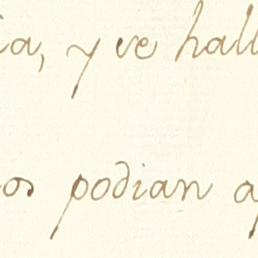 ia, y se hall
os podian a